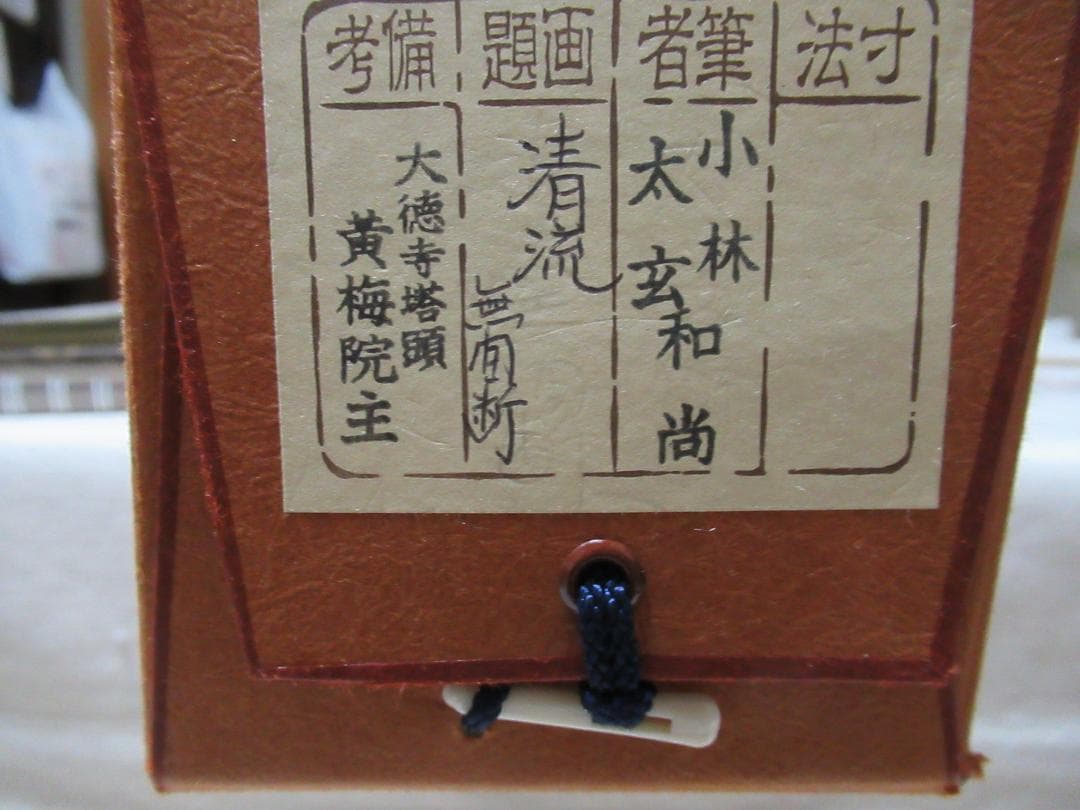 寸法
筆者
小林
太玄和尚
画題
清流
無間断
備考
大徳寺塔頭
黄梅院主